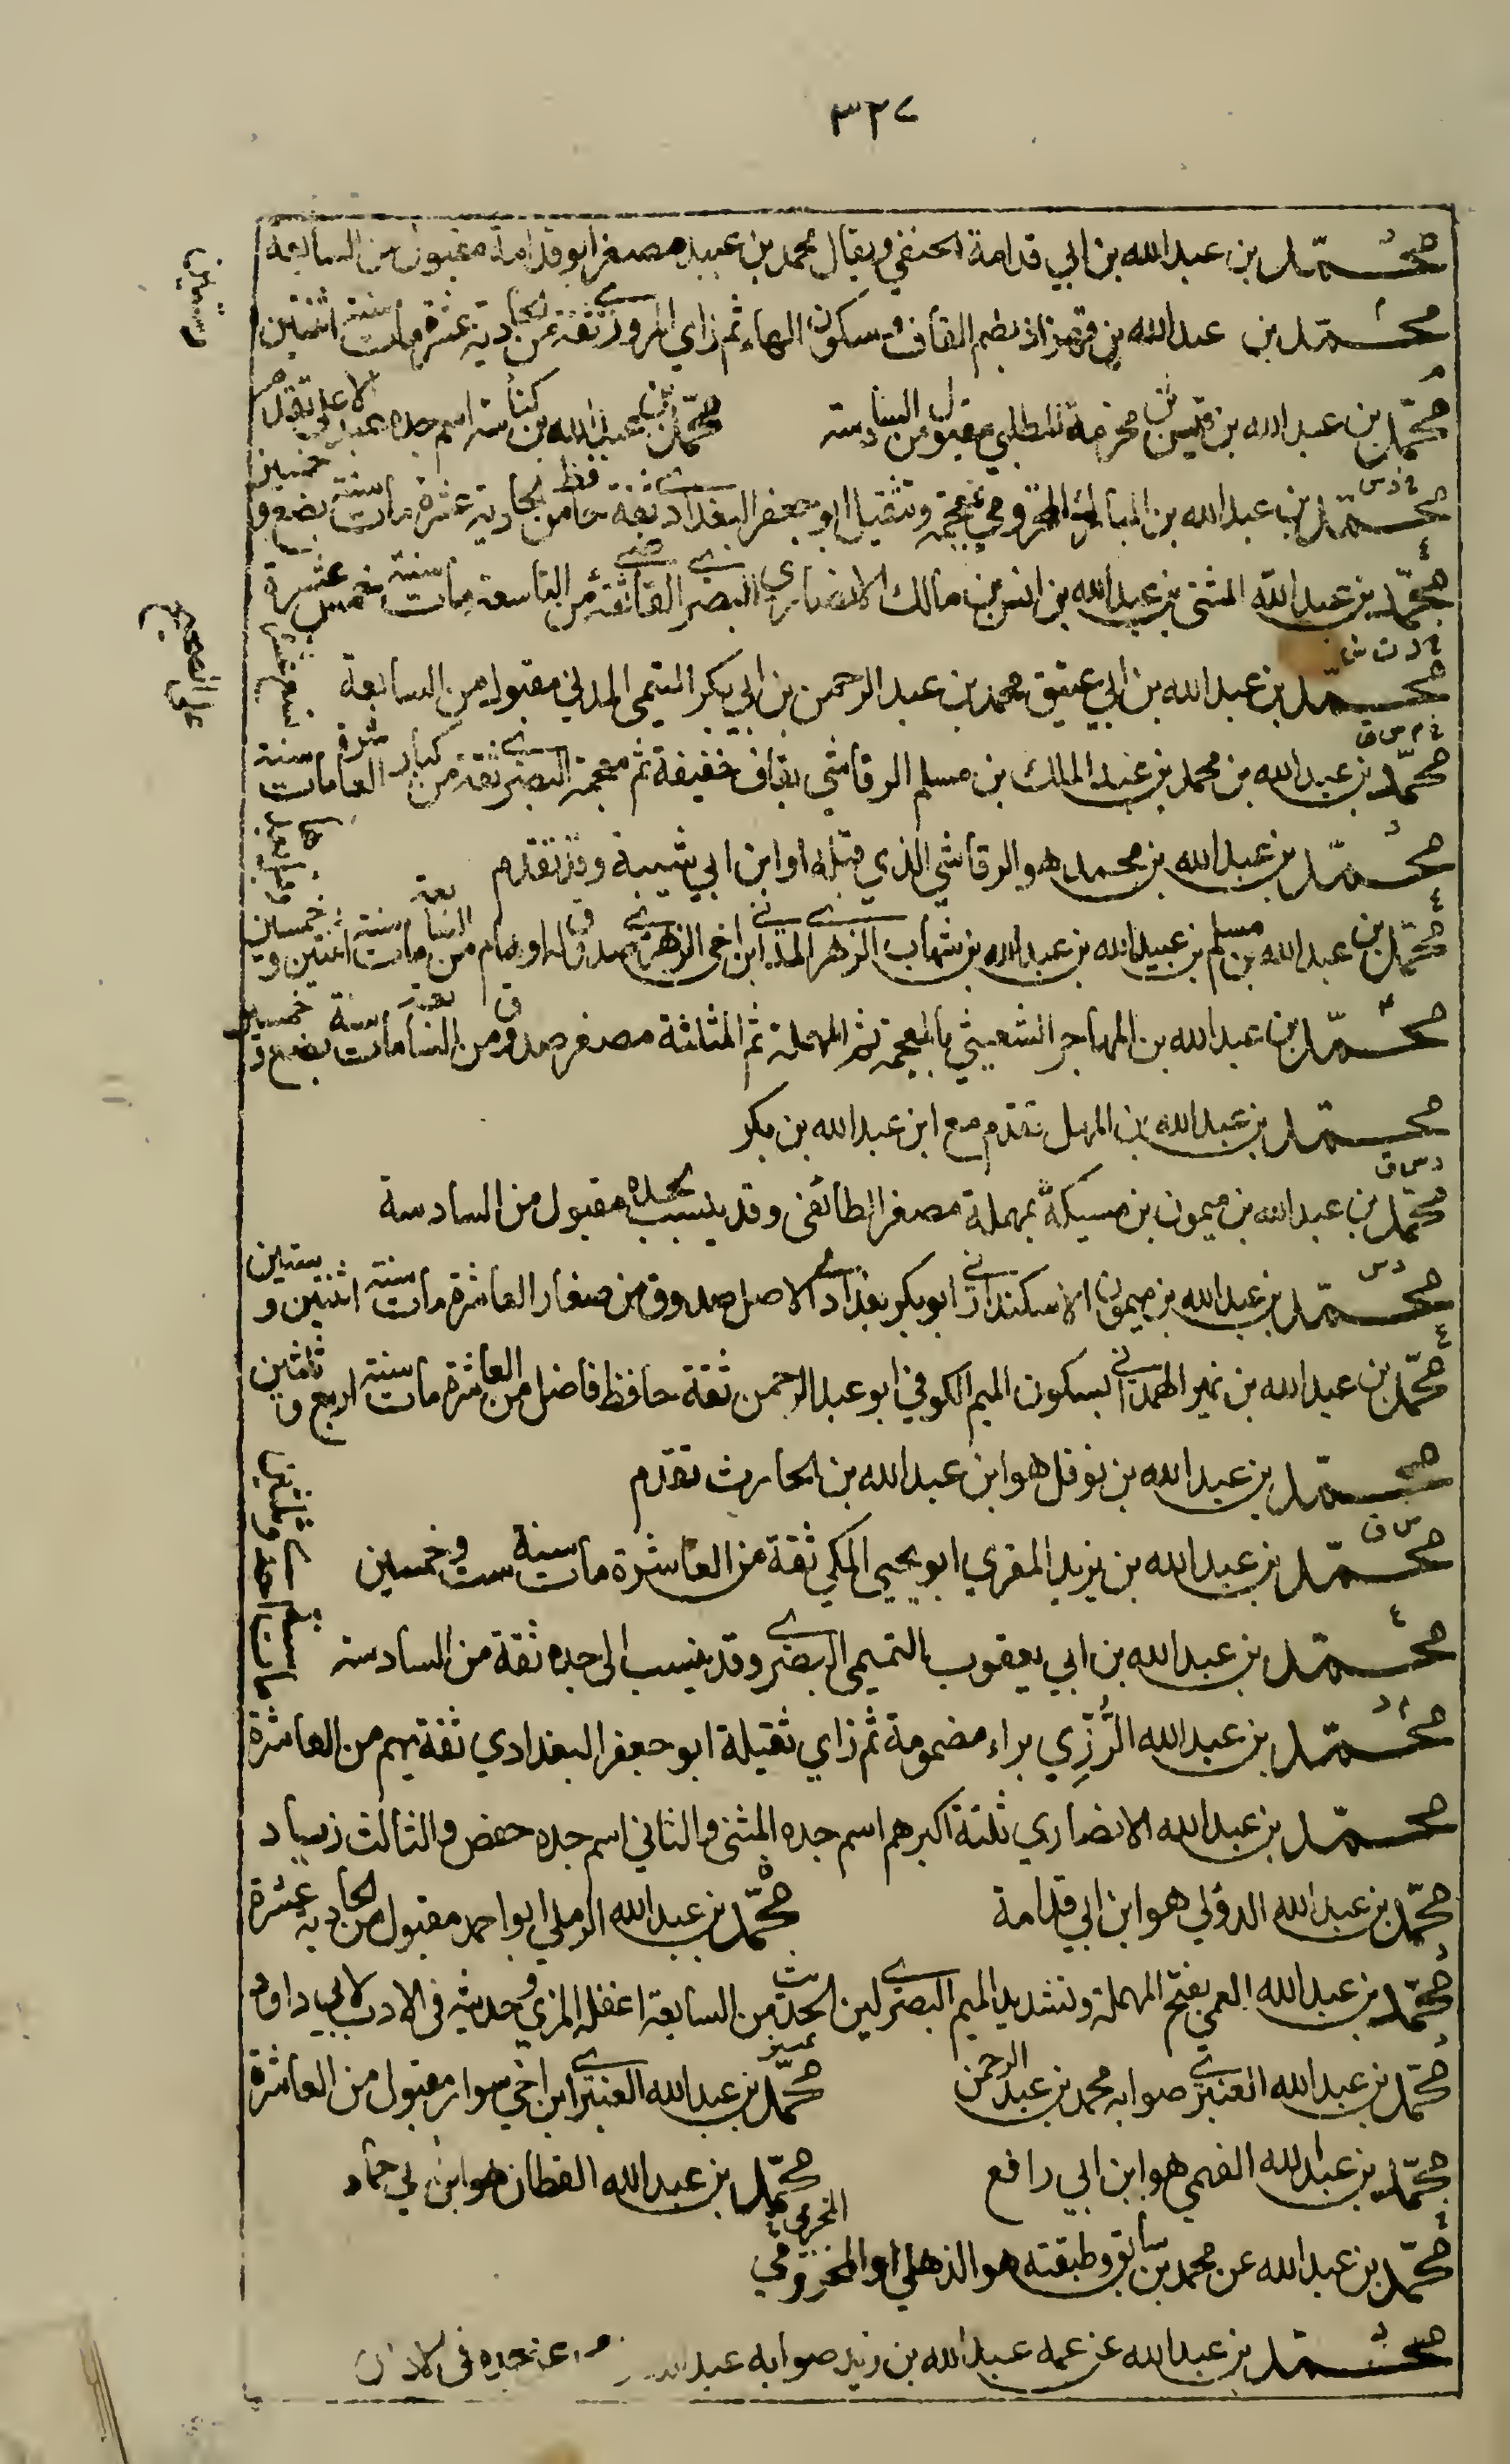 ٣٢٧
د
محمد بن عبد الله بن ابي قدامة الحنفي ويقال محمد بن عبيد مصغر ابو قدامة مقبول من السابعة
م
محمد بن عبد الله بن قهزاذ بضم القاف وسكون الهاء ثم زاي المروزي ثقة من الحادية عشرة مات سنة اثنتين
وستين
م
محمد بن عبد الله بن قيس بن مخرمة المطلبي مقبول من السادسة
محمد بن عبد الله بن كناسة اسم جده عبد الاعلى تقدم
خ د س
محمد بن عبد الله بن المبارك المخرمي بمعجمة وتثقيل ابو جعفر البغدادي ثقة حافظ من الحادية عشرة مات سنة بضع و خمسين
ع
محمد بن عبد الله المثنى بن عبد الله بن انس بن مالك الانصاري البصري القاضي ثقة من التاسعة مات سنة خمس عشرة
على الصحيح
خ د ت س
محمد بن عبد الله بن ابي عتيق محمد بن عبد الرحمن بن ابي بكر التيمي المدني مقبول من السابعة
خ م س ق
محمد بن عبد الله بن محمد بن عبد الملك بن مسلم الرقاشي بقاف خفيفة ثم معجمة البصري ثقة من كبار العاشرة مات سنة
د
محمد بن عبد الله بن محمد هو الرقاشي الذي قبله او ابن ابي شيبة وقد تقدم
ع
محمد بن عبد الله بن مسلم بن عبيد الله بن عبد الله بن شهاب الزهري المدني ابن اخي الزهري صدوق له اوهام من السابعة مات سنة اثنتين و خمسين
محمد بن عبد الله بن المهاجر الشعيثي بالمعجمة ثم المهملة ثم المثلثة مصغر صدوق من السابعة مات سنة بضع و خمسين
محمد بن عبد الله بن المهل تقدم مع ابن عبد الله بن بكر
د س ق
محمد بن عبد الله بن ميمون بن مسيكة بمهملة مصغر الطائفي وقد ينسب لجده مقبول من السادسة
د س
محمد بن عبد الله بن ميمون الاسكندراني ابو بكر بغدادي الاصل صدوق من صغار العاشرة مات سنة اثنتين و ستين
ع
محمد بن عبد الله بن نمير الهمداني بسكون الميم الكوفي ابو عبد الرحمن ثقة حافظ فاضل من العاشرة مات سنة اربع و ثلثين
محمد بن عبد الله بن نوفل هو ابن عبد الله بن الحارث تقدم
س ق
محمد بن عبد الله بن يزيد المقري ابو يحيى المكي ثقة من العاشرة مات سنة ست و خمسين
ع
محمد بن عبد الله بن ابي يعقوب التميمي البصري وقد ينسب الى جده ثقة من السادسة
م د
محمد بن عبد الله الرُّزِّي براء مضمومة ثم زاي ثقيلة ابو جعفر البغدادي ثقة يهم من العاشرة
محمد بن عبد الله الانصاري ثلثة اكبرهم اسم جده المثنى والثاني اسم جده حفص والثالث زياد
محمد بن عبد الله الدؤلي هو ابن ابي قدامة
محمد بن عبد الله الرملي ابو احمد مقبول من الحادية عشرة
محمد بن عبد الله العمي بفتح المهملة وتشديد الميم البصري لين الحديث من السابعة اغفله المزي وحديثه في الادب لابي داود
د
محمد بن عبد الله العنبري صوابه محمد بن عبد الرحمن
تمييز
محمد بن عبد الله العنبري ابن اخي سوار مقبول من العاشرة
محمد بن عبد الله الفهمي هو ابن ابي رافع
محمد بن عبد الله القطان هو ابن ابي حماد
محمد بن عبد الله عن محمد بن سابق وطبقته هو الذهلي او المخرمي
د
محمد بن عبد الله عن عمه عبد الله بن زيد صوابه عبد الله عن جده في الاذان